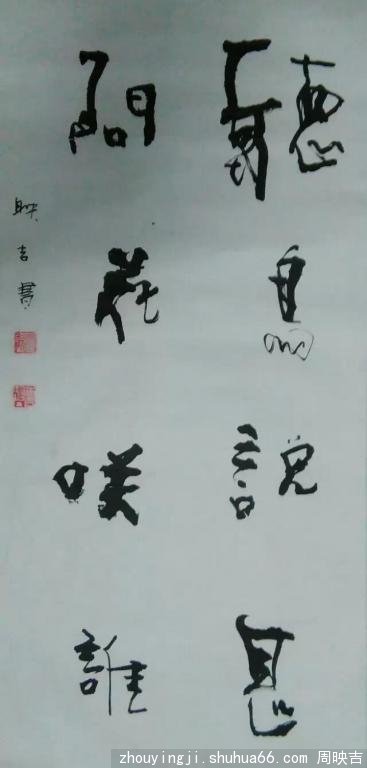 聽鳥說甚
問花咲誰
映吉書
zhouyingji.shuhua66.com 周映吉